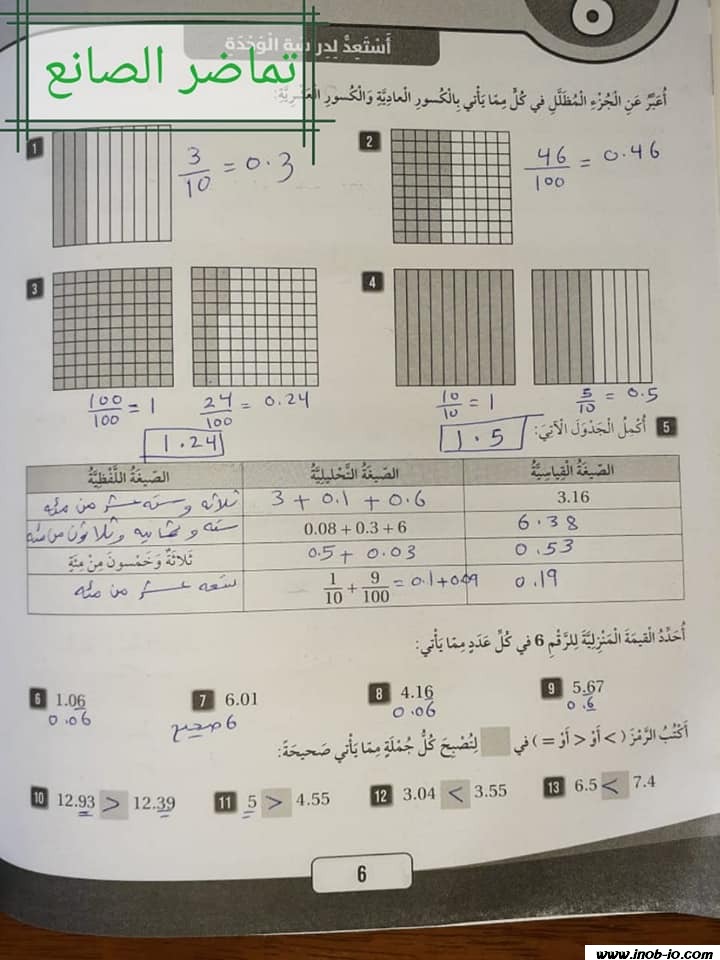 6
أَسْتَعِدُّ لِدِراسَةِ الْوَحْدَةِ
تماضر الصانع
أُعَبِّرُ عَنِ الْجُزْءِ الْمُظَلَّلِ في كُلٍّ مِمّا يَأْتي بِالْكُسورِ الْعادِيَّةِ وَالْكُسورِ الْعَشْرِيَّةِ:
1 3/10 = 0.3
2 46/100 = 0.46
3 100/100 = 1 24/100 = 0.24
1.24
4 10/10 = 1 5/10 = 0.5
1.5
5 أُكْمِلُ الْجَدْوَلَ الْآتِيَ:
الصّيغَةُ الْقِياسِيَّةُ الصّيغَةُ التَّحْليلِيَّةُ الصّيغَةُ اللَّفْظِيَّةُ
3.16 3 + 0.1 + 0.6 ثلاثه وسته عشر من مئه
6.38 0.08 + 0.3 + 6 سته و ثمانيه وثلاثون من مئه
0.53 0.5 + 0.03 ثَلاثَةٌ وَخَمْسونَ مِنْ مِئَةٍ
0.19 1/10 + 9/100 = 0.1 + 0.09 تسعه عشر من مئه
أُحَدِّدُ الْقيمَةَ الْمَنْزِلِيَّةَ لِلرَّقْمِ 6 في كُلِّ عَدَدٍ مِمّا يَأْتي:
6 1.06 7 6.01 8 4.16 9 5.67
0.06 6 صحيح 0.06 0.6
أَكْتُبُ الرَّمْزَ (< أَوْ > أَوْ =) في لِتُصْبِحَ كُلُّ جُمْلَةٍ مِمّا يَأْتي صَحيحَةً:
10 12.93 > 12.39 11 5 > 4.55 12 3.04 < 3.55 13 6.5 < 7.4
6
www.inob-io.com